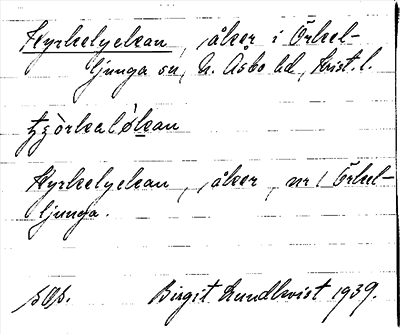 Kyrkelyckan, åker i Örkel-
ljunga sn, N. Åsbo hd, Krist. l.
Kyrkelyckan, åker, nr 1 Örkel-
ljunga.
Birgit Lundkvist 1939.